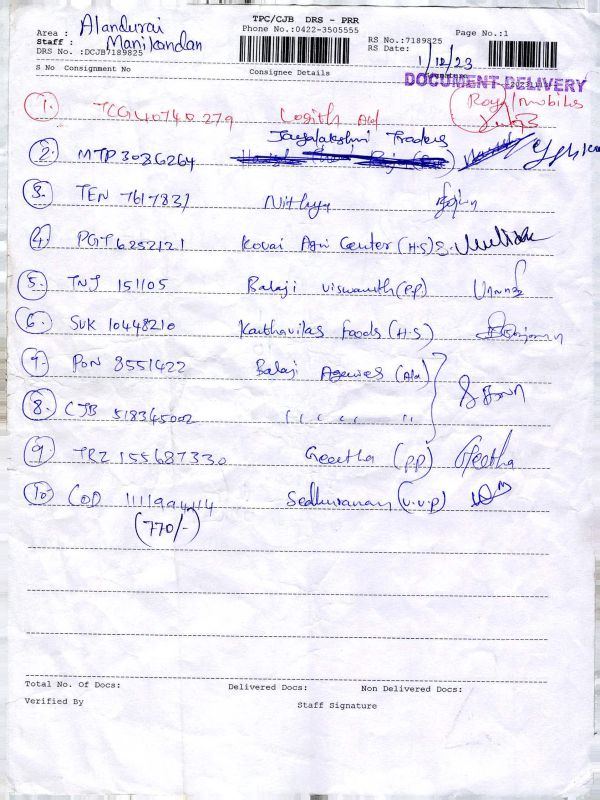 TPC/CJB DRS - PRR
Area : Alandurai
Phone No.:0422-3505555
RS No.:7189825
Page No.:1
Staff : Manikandan
RS Date: 1/12/23
DRS No. :DCJB7189825
S No Consignment No
Consignee Details
Signature
DOCUMENT DELIVERY
1. TCG 40740279 Logith Royal mobiles
2. MTP 3086264 Jayalakshmi Traders
3. TEN 7617831 Nithya
4. PGT 6252121 Kovai Agri Center (H.S)
5. TNJ 151105 Balaji viswanth (PP)
6. SUK 10448210 foods (H.S)
PON 8551422 Balaji
8. CJB 518345002 " "
9. TRZ 155687330 Geetha (P.P) Geetha
10. COD (V.V.P)
(770/-)
Total No. Of Docs:
Delivered Docs:
Non Delivered Docs:
Verified By
Staff Signature